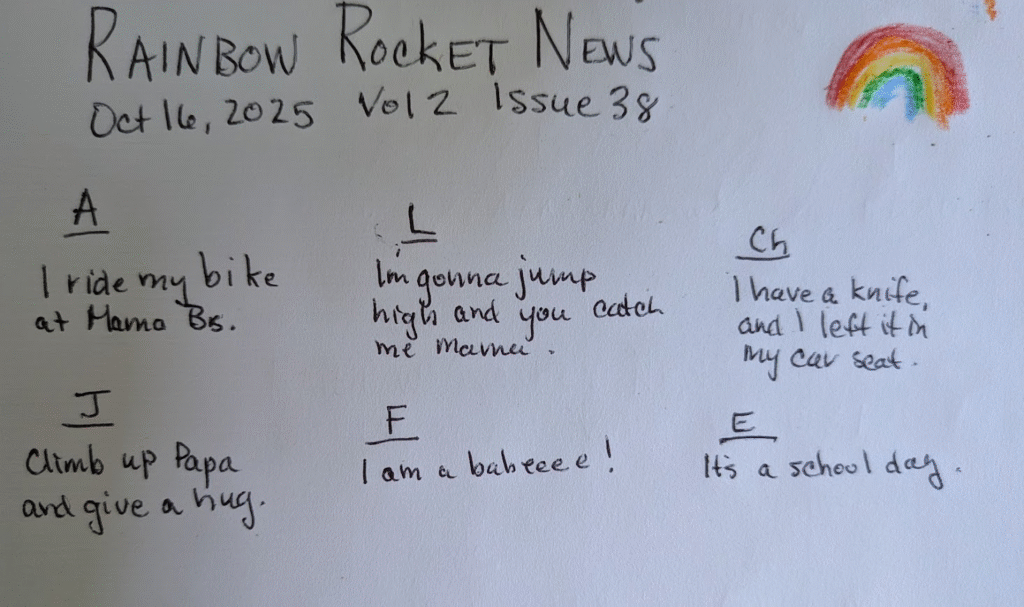 RAINBOW ROCKET NEWS
Oct 16, 2025 Vol 2 Issue 38
A
I ride my bike
at Mama Bs.
L
Im gonna jump
high and you catch
me mama.
Ch
I have a knife,
and I left it in
my car seat.
J
Climb up Papa
and give a hug.
F
I am a babeeee!
E
It's a school day.